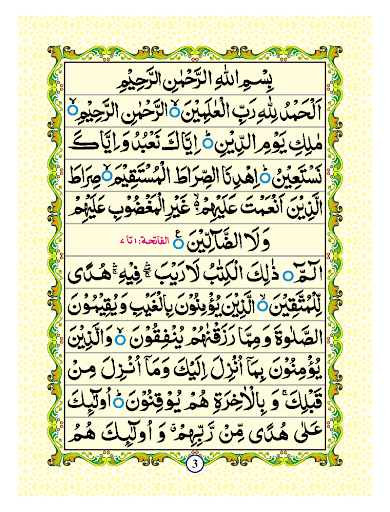 بِسْمِ اللهِ الرَّحْمٰنِ الرَّحِيْمِ
اَلْحَمْدُ لِلّٰهِ رَبِّ الْعٰلَمِيْنَ ۙ الرَّحْمٰنِ الرَّحِيْمِ ۙ
مٰلِكِ يَوْمِ الدِّيْنِ ؕ اِيَّاكَ نَعْبُدُ وَ اِيَّاكَ
نَسْتَعِيْنُ ؕ اِهْدِنَا الصِّرَاطَ الْمُسْتَقِيْمَ ۙ صِرَاطَ
الَّذِيْنَ اَنْعَمْتَ عَلَيْهِمْ ۙ۬ غَيْرِ الْمَغْضُوْبِ عَلَيْهِمْ
وَلَا الضَّآلِّيْنَ ۠ الفاتحة: ۱ تا ۷
الٓمّٓ ۚ ذٰلِكَ الْكِتٰبُ لَا رَيْبَ ۛۚ فِيْهِ ۛۚ هُدًى
لِّلْمُتَّقِيْنَ ۙ الَّذِيْنَ يُؤْمِنُوْنَ بِالْغَيْبِ وَ يُقِيْمُوْنَ
الصَّلٰوةَ وَ مِمَّا رَزَقْنٰهُمْ يُنْفِقُوْنَ ۙ وَالَّذِيْنَ
يُؤْمِنُوْنَ بِمَاۤ اُنْزِلَ اِلَيْكَ وَمَاۤ اُنْزِلَ مِنْ
قَبْلِكَ ۚ وَ بِالْاٰخِرَةِ هُمْ يُوْقِنُوْنَ ؕ اُولٰٓئِكَ
عَلٰى هُدًى مِّنْ رَّبِّهِمْ ۗ وَ اُولٰٓئِكَ هُمُ
3